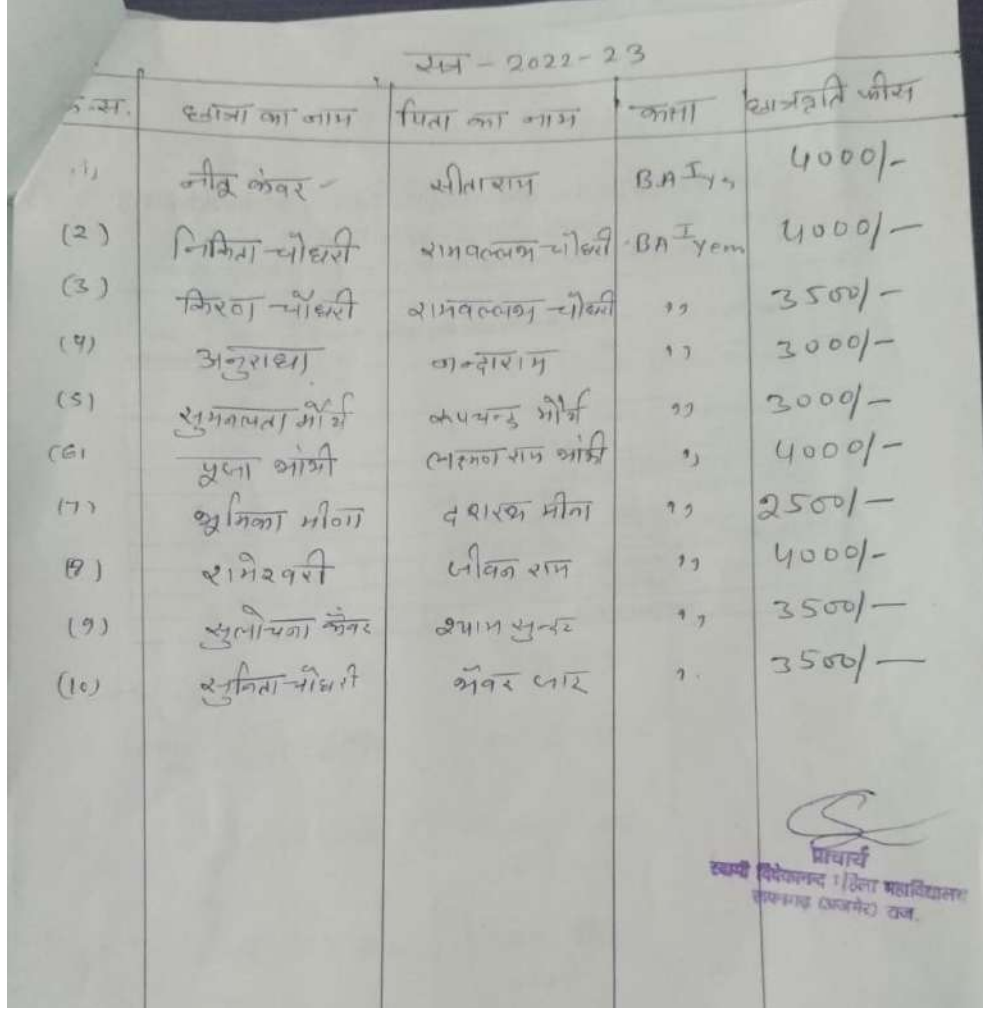 सत्र - 2022-23
क्र.स. छात्रा का नाम पिता का नाम कक्षा छात्रवृति फीस
नीतू कंवर - सीताराम BA I 4000/-
(2) निकिता चौधरी रामवल्लभ चौधरी BA I Year 4000/-
(3) किरण चौधरी रामवल्लभ चौधरी ,, 3500/-
(4) अनुराधा नन्दाराम ,, 3000/-
(5) सुमनलता मौर्य रूपचन्द मौर्य ,, 3000/-
(6) पूजा भांभी लक्ष्मण राम भांभी ,, 4000/-
(7) भूमिका मीणा दशरथ मीना ,, 2500/-
(8) रामेश्वरी जीवन राम ,, 4000/-
(9) सुलोचना कँवर श्याम सुन्दर ,, 3500/-
(10) सुनिता चौधरी भँवर 3500/-
प्राचार्य
स्वामी विवेकानन्द महिला महाविद्यालय
(अजमेर) राज.